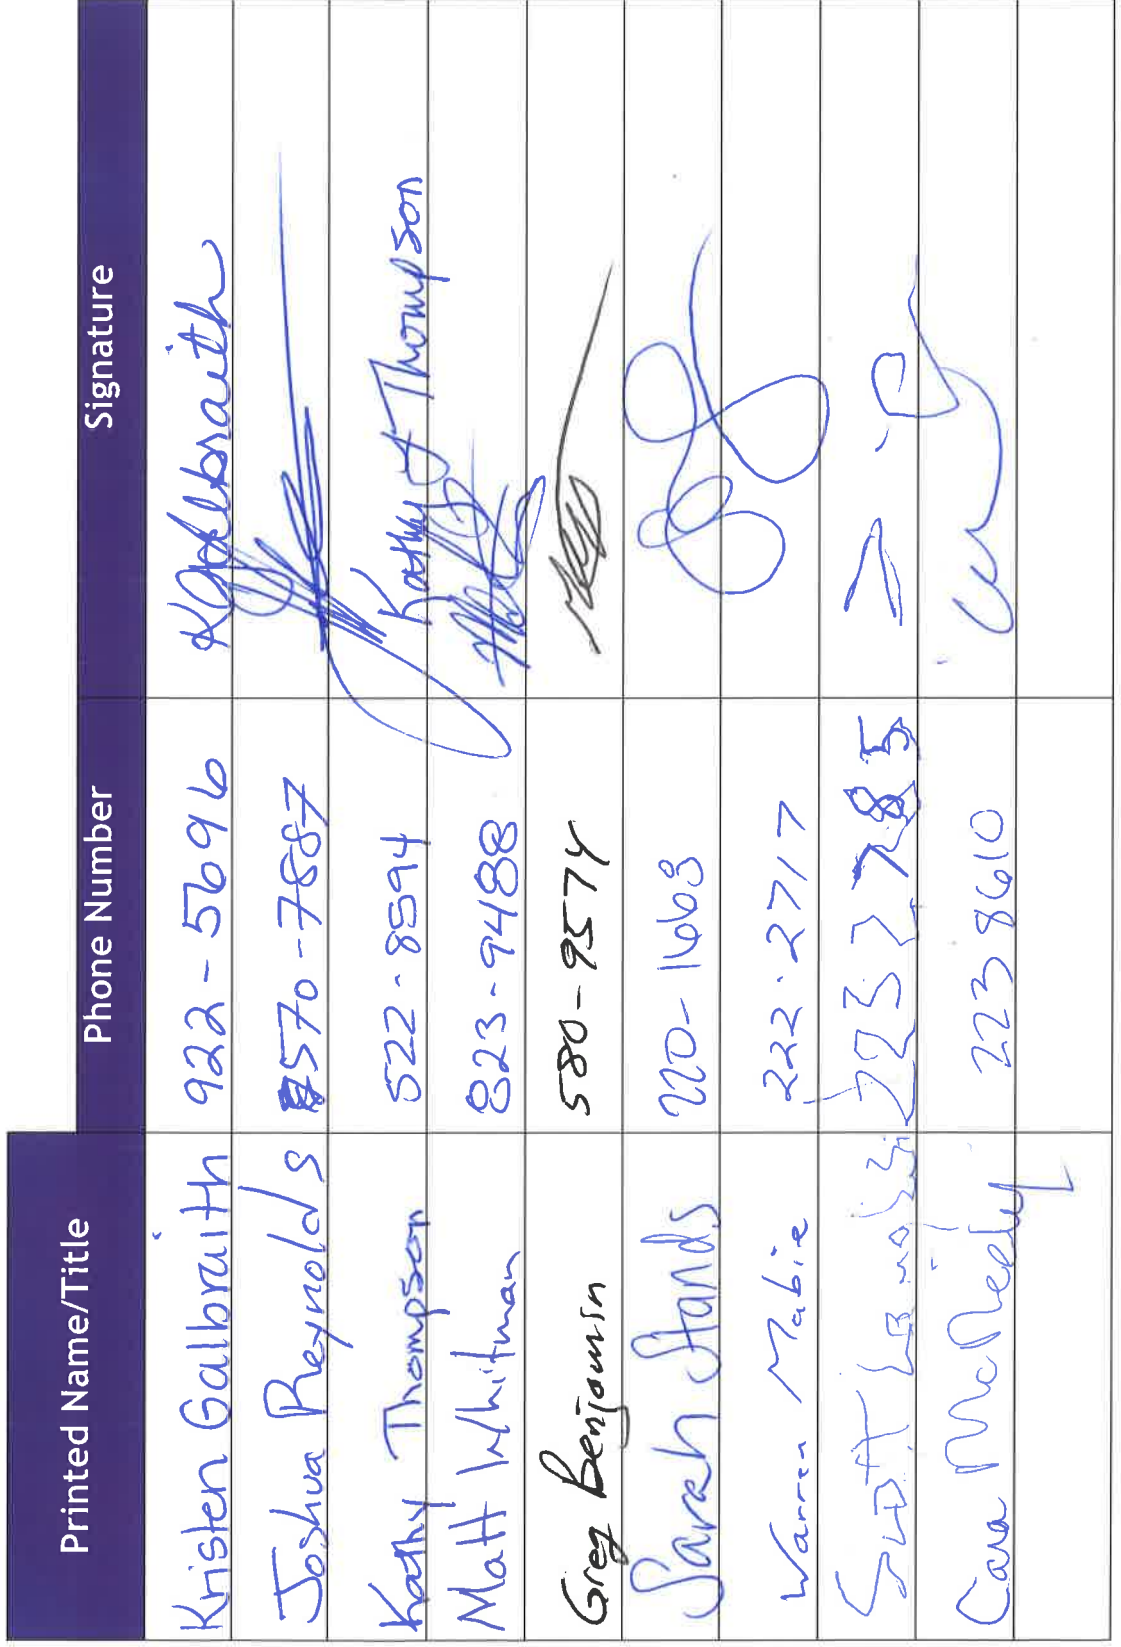 Printed Name/Title Phone Number Signature
Kristen Galbraith 922-5696 KGalbraith
Joshua Reynolds 570-7887
Kathy Thompson 522-8594 Kathy J Thompson
Matt Whitman 823-9488
Greg Benjamin 580-9574
Sarah Hands 220-1663
Warren Mabie 222-2717
Scott 223 2785
Cara McNeely 223 8610